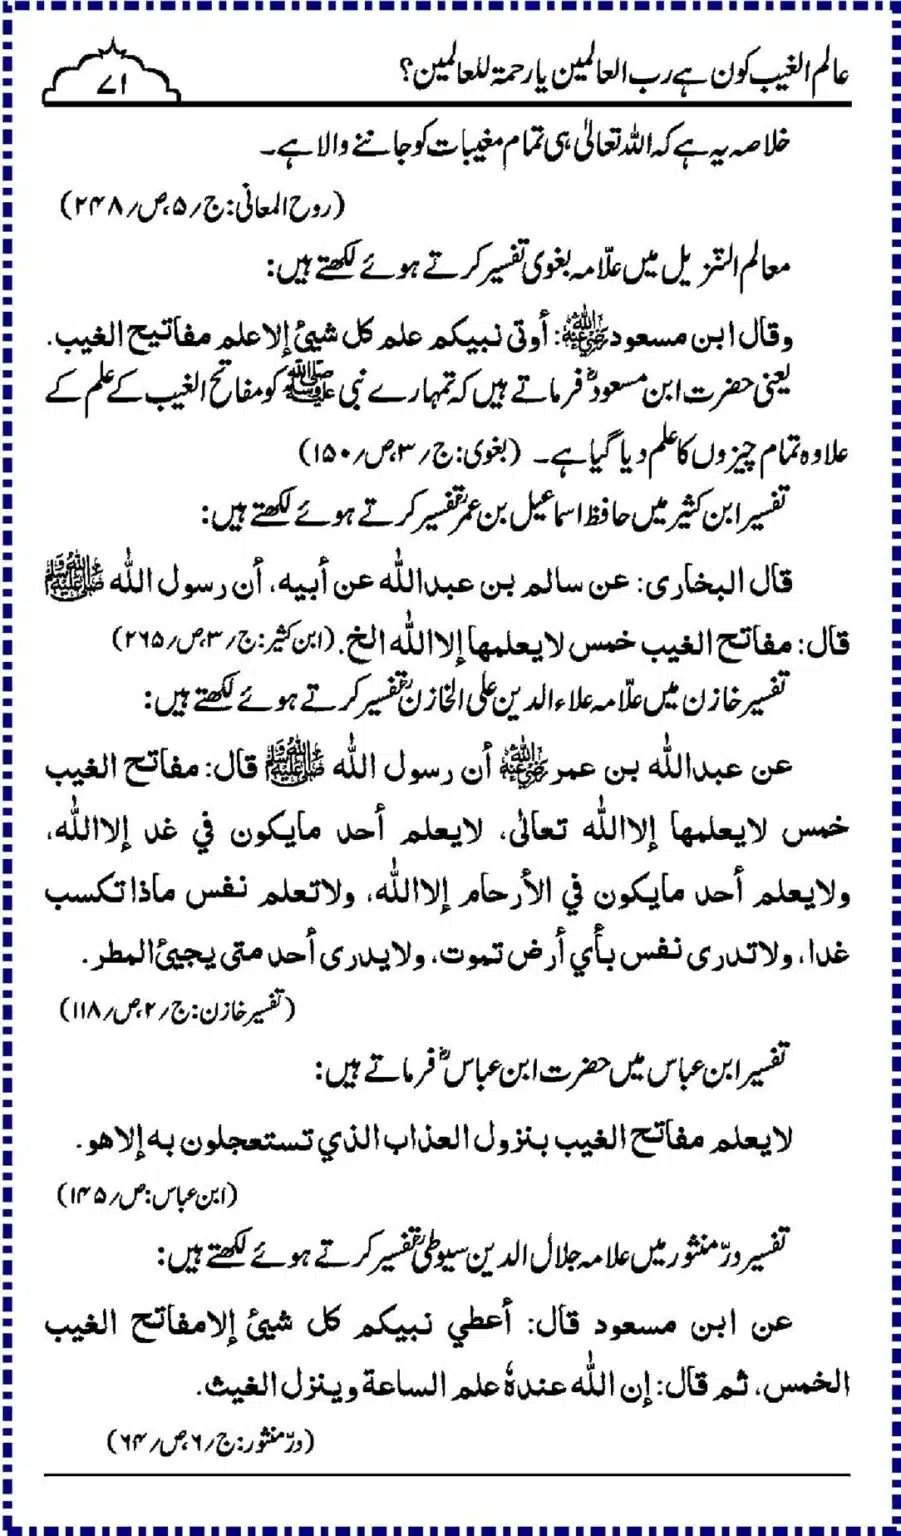 عالم الغیب کون ہے رب العالمین یا رحمۃ للعالمین؟
۷۱
خلاصہ یہ ہے کہ اللہ تعالیٰ ہی تمام مغیبات کو جاننے والا ہے۔
(روح المعانی: ج/۵،ص/۲۴۸)
معالم التنزیل میں علّامہ بغوی تفسیر کرتے ہوئے لکھتے ہیں:
وقال ابن مسعود رضی اللہ عنہ: أوتی نبیکم علم کل شیئ إلا علم مفاتیح الغیب.
یعنی حضرت ابن مسعودؓ فرماتے ہیں کہ تمہارے نبی ﷺ کو مفاتح الغیب کے علم کے
علاوہ تمام چیزوں کا علم دیا گیا ہے۔ (بغوی: ج/۳،ص/۱۵۰)
تفسیر ابن کثیر میں حافظ اسماعیل بن عمرؒ تفسیر کرتے ہوئے لکھتے ہیں:
قال البخاری: عن سالم بن عبداللہ عن أبیہ، أن رسول اللہ ﷺ
قال: مفاتح الغیب خمس لایعلمھا إلا اللہ الخ. (ابن کثیر: ج/۳،ص/۲۶۵)
تفسیر خازن میں علّامہ علاء الدین علی الخازنؒ تفسیر کرتے ہوئے لکھتے ہیں:
عن عبداللہ بن عمر رضی اللہ عنہ أن رسول اللہ ﷺ قال: مفاتح الغیب
خمس لایعلمھا إلا اللہ تعالیٰ، لایعلم أحد مایکون في غد إلا اللہ،
ولایعلم أحد مایکون في الأرحام إلا اللہ، ولاتعلم نفس ماذا تکسب
غدا، ولاتدری نفس بأي أرض تموت، ولایدری أحد متی یجیئ المطر.
(تفسیر خازن: ج/۲،ص/۱۱۸)
تفسیر ابن عباس میں حضرت ابن عباسؓ فرماتے ہیں:
لایعلم مفاتح الغیب بنزول العذاب الذي تستعجلون بہ إلا ھو.
(ابن عباس: ص/۱۴۵)
تفسیر درّ منثور میں علامہ جلال الدین سیوطیؒ تفسیر کرتے ہوئے لکھتے ہیں:
عن ابن مسعود قال: أعطي نبیکم کل شیئ إلا مفاتح الغیب
الخمس، ثم قال: إن اللہ عندہٗ علم الساعة وینزل الغیث.
(درّ منثور: ج/۶،ص/۶۴)